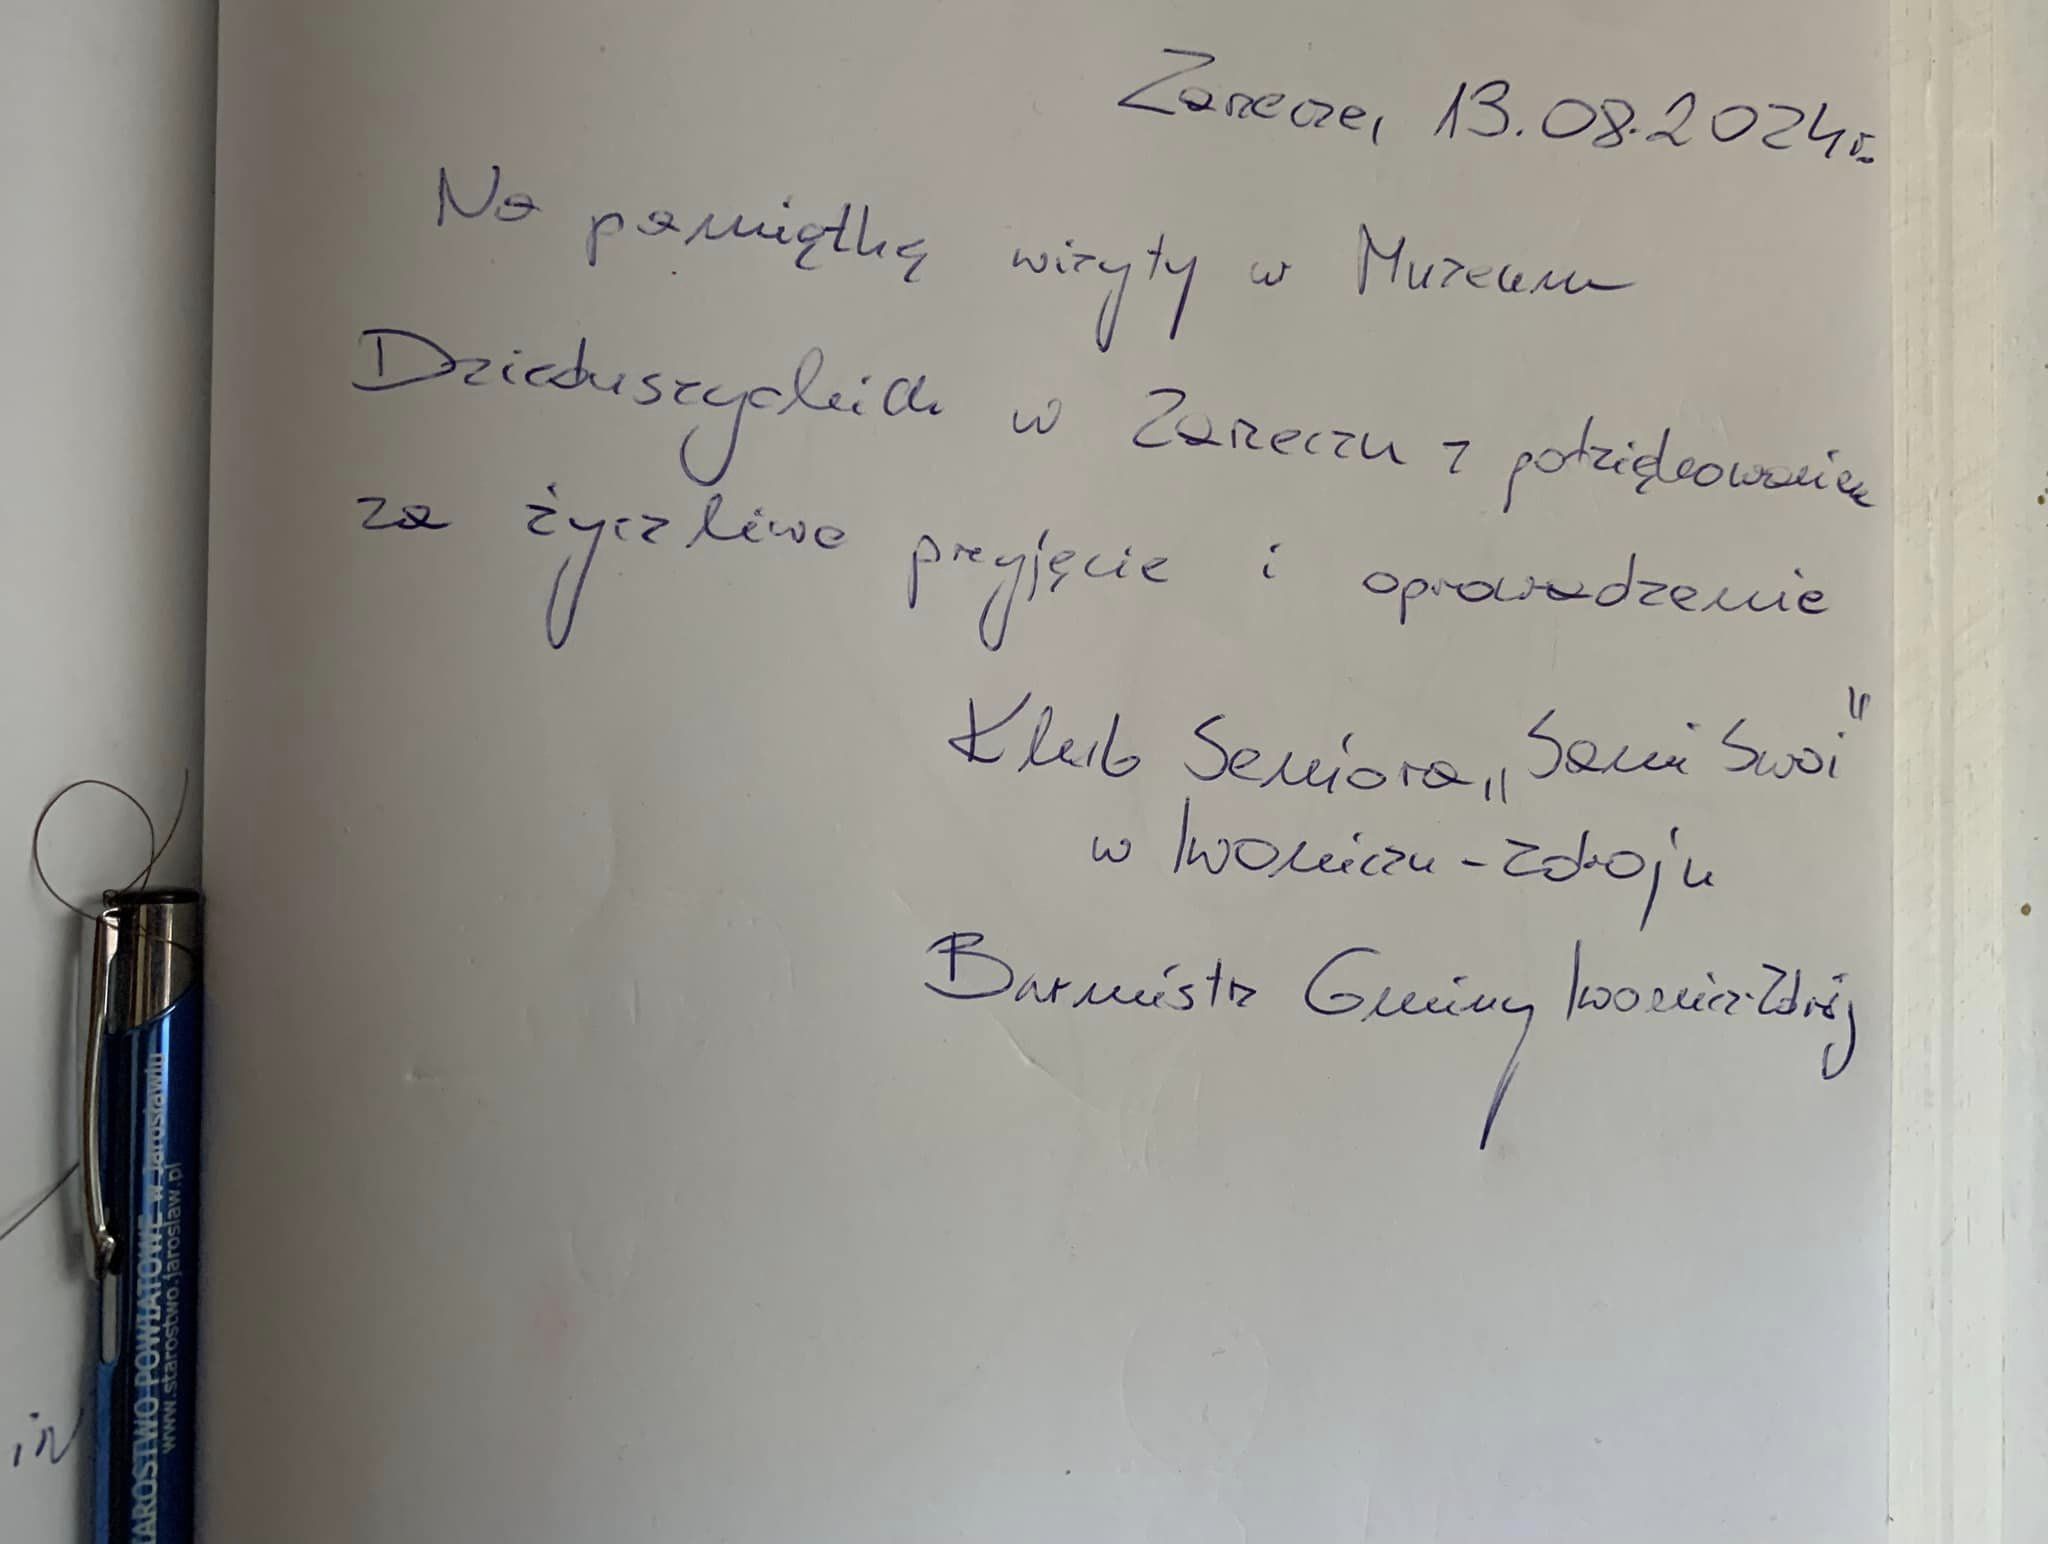 Zarzecze, 13.08.2024r.
Na pamiątkę wizyty w Muzeum
Dzieduszyckich w Zarzeczu z podziękowaniem
za życzliwe przyjęcie i oprowadzenie
Klub Seniora „Sami Swoi”
w Iwoniczu-Zdroju
Burmistrz Gminy Iwonicz-Zdrój
TAROSTWO POWIATOWE w Jarosławiu
www.starostwo.jaroslaw.pl